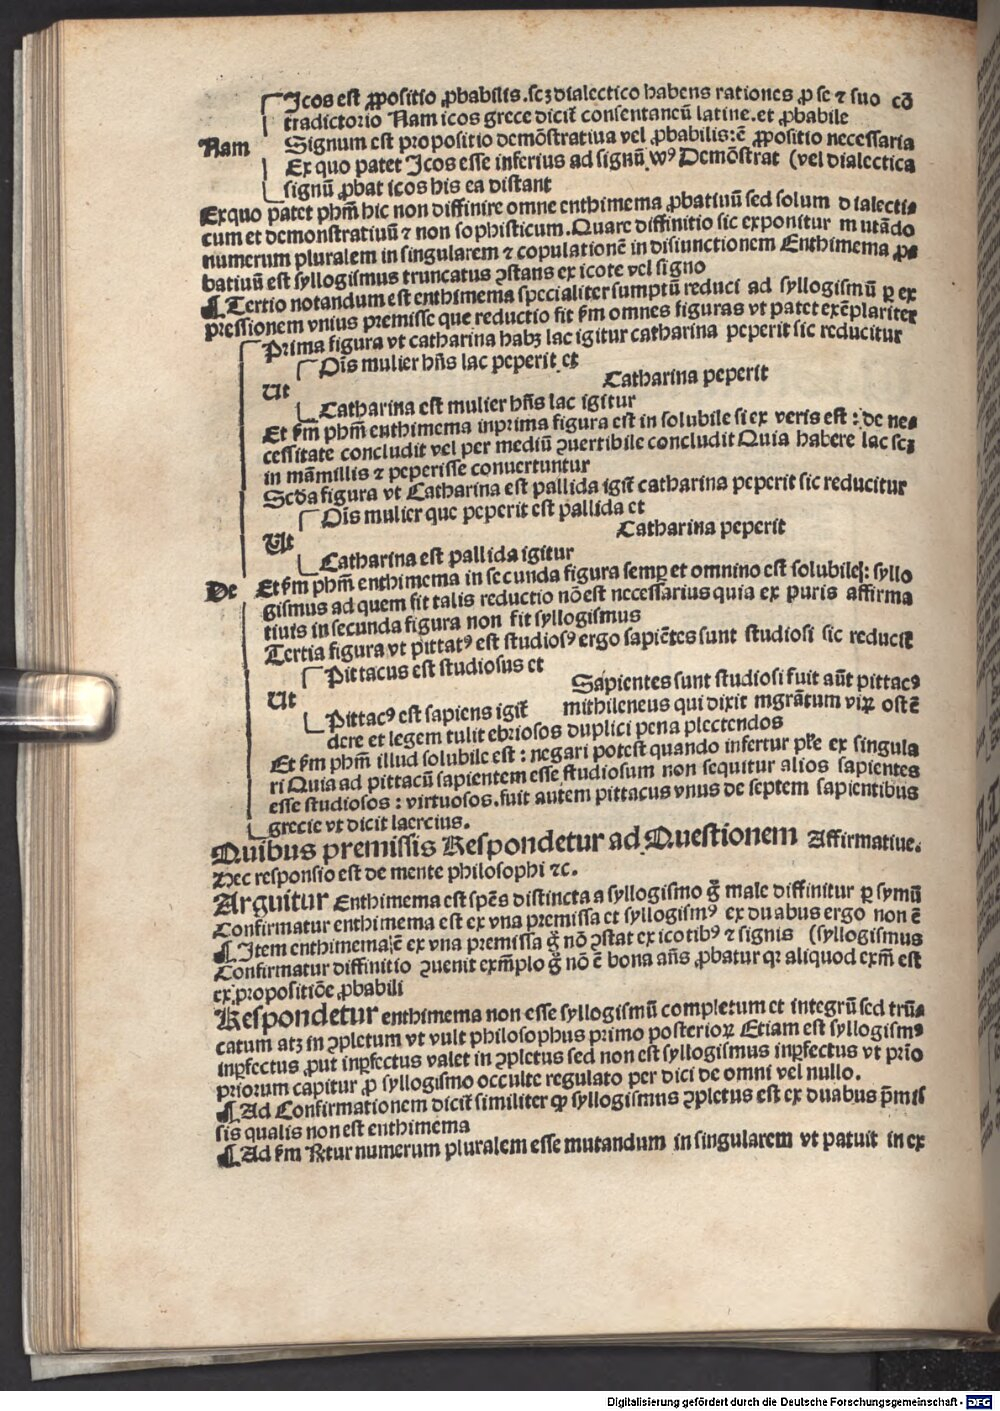 Icos est ꝓpositio ꝓbabilis.scꝫ dialectico habens rationes ꝓ se ⁊ suo cō
tradictorio Nam icos grece dicit̄ consentaneū latine.et ꝓbabile
Nam Signum est propositio demōstratiua vel ꝓbabilis: ē ꝓpositio necessaria
Ex quo patet Icos esse inferius ad signū. Demōstrat (vel dialectica
signū ꝓbat icos his ea distant
Ex quo patet phm̄ hic non diffinire omne enthimema ꝓbatiuū sed solum dialecti⸗
cum et demonstratiuū ⁊ non sophisticum. Quare diffinitio sic exponitur mutādo
numerum pluralem in singularem ⁊ copulationē in disiunctionem Enthimema ꝓ⸗
batiuū est syllogismus truncatus ꝯstans ex icote vel signo
¶ Tertio notandum est enthimema specialiter sumptū reduci ad syllogismū ꝑ ex
pressionem vnius premisse que reductio fit s̄m omnes figuras vt patet exēplariter
Prima figura vt catharina habꝫ lac igitur catharina peperit sic reducitur
Oīs mulier hn̄s lac peperit et
Catharina peperit
Ut
Catharina est mulier hn̄s lac igitur
Et s̄m phm̄ enthimema in prima figura est in solubile si ex veris est : de ne⸗
cessitate concludit vel per mediū ꝯuertibile concludit Quia habere lac scꝫ
in māmillis ⁊ peperisse conuertuntur
Scd̄a figura vt Catharina est pallida igit̄ catharina peperit sic reducitur
Oīs mulier que peperit est pallida et
Catharina peperit
Ut
Catharina est pallida igitur
De Et s̄m phm̄ enthimema in secunda figura semꝑ et omnino est solubile: syllo
gismus ad quem fit talis reductio nō est necessarius quia ex puris affirma
tiuis in secunda figura non fit syllogismus
Tertia figura vt pittatꝰ est studiosꝰ ergo sapiētes sunt studiosi sic reducit̄
Pittacus est studiosus et
Sapientes sunt studiosi fuit aūt pittacꝰ
Ut
Pittacꝰ est sapiens igit̄ mithileneus qui dixit mgrātum viꝝ ostē
dere et legem tulit ebriosos duplici pena plectendos
Et s̄m phm̄ illud solubile est : negari potest quando infertur pl̄e ex singula
ri Quia ad pittacū sapientem esse studiosum non sequitur alios sapientes
esse studiosos : virtuosos. fuit autem pittacus vnus de septem sapientibus
grecie vt dicit laercius.
Quibus premissis Respondetur ad Questionem Affirmatiue.
Hec responsio est de mente philosophi ⁊c.
Arguitur Enthimema est spēs distincta a syllogismo g̊ male diffinitur ꝑ symū
Confirmatur enthimema est ex vna premissa et syllogismꝰ ex duabus ergo non ē
¶ Item enthimema ē ex vna premissa g̊ nō ꝯstat ex icotibꝰ ⁊ signis (syllogismus
Confirmatur diffinitio ꝯuenit exm̄plo g̊ nō ē bona ān̄s ꝓbatur qꝛ aliquod exm̄ est
ex propositiōe ꝓbabili
Respondetur enthimema non esse syllogismū completum et integrū sed trū⸗
catum atꝫ in ꝯpletum vt vult philosophus primo posterioꝝ Etiam est syllogismꝰ
inꝑfectus ꝓut inꝑfectus valet in ꝯpletus sed non est syllogismus inꝑfectus vt pri̅o
priorum capitur ꝓ syllogismo occulte regulato per dici de omni vel nullo.
¶ Ad Confirmationem dicit̄ similiter ꝙ syllogismus ꝯpletus est ex duabus p̄mis
sis qualis non est enthimema
¶ Ad s̄m Rt̄ur numerum pluralem esse mutandum in singularem vt patuit in ex
Digitalisierung gefördert durch die Deutsche Forschungsgemeinschaft - DFG